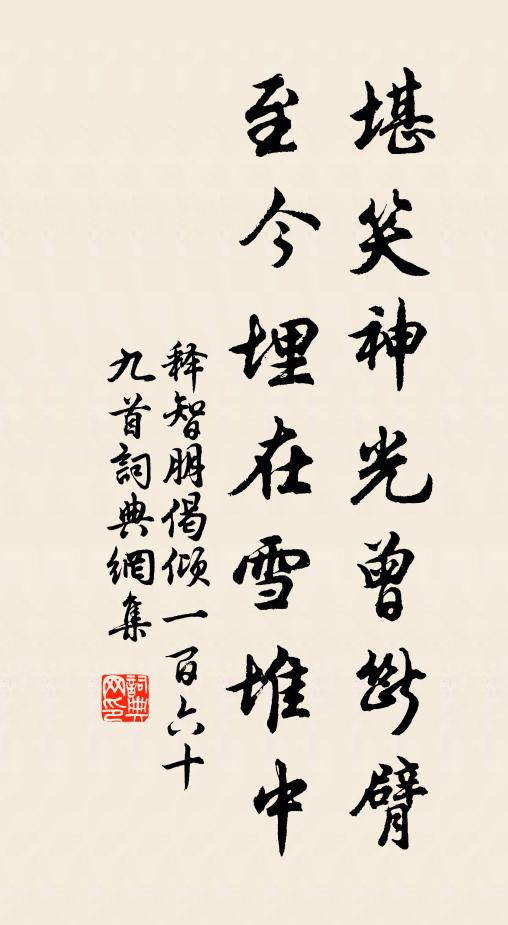 堪笑神光曾断臂
至今埋在雪堆中
释智朋偈倾一百六十
九首詞典網集
詞典网印